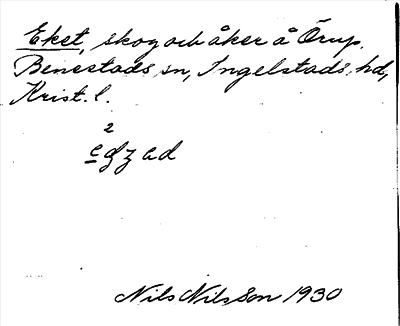 Eket, skog och åker å Örup,
Benestads sn, Ingelstads hd,
Krist. l.
2
Nils Nilsson 1930